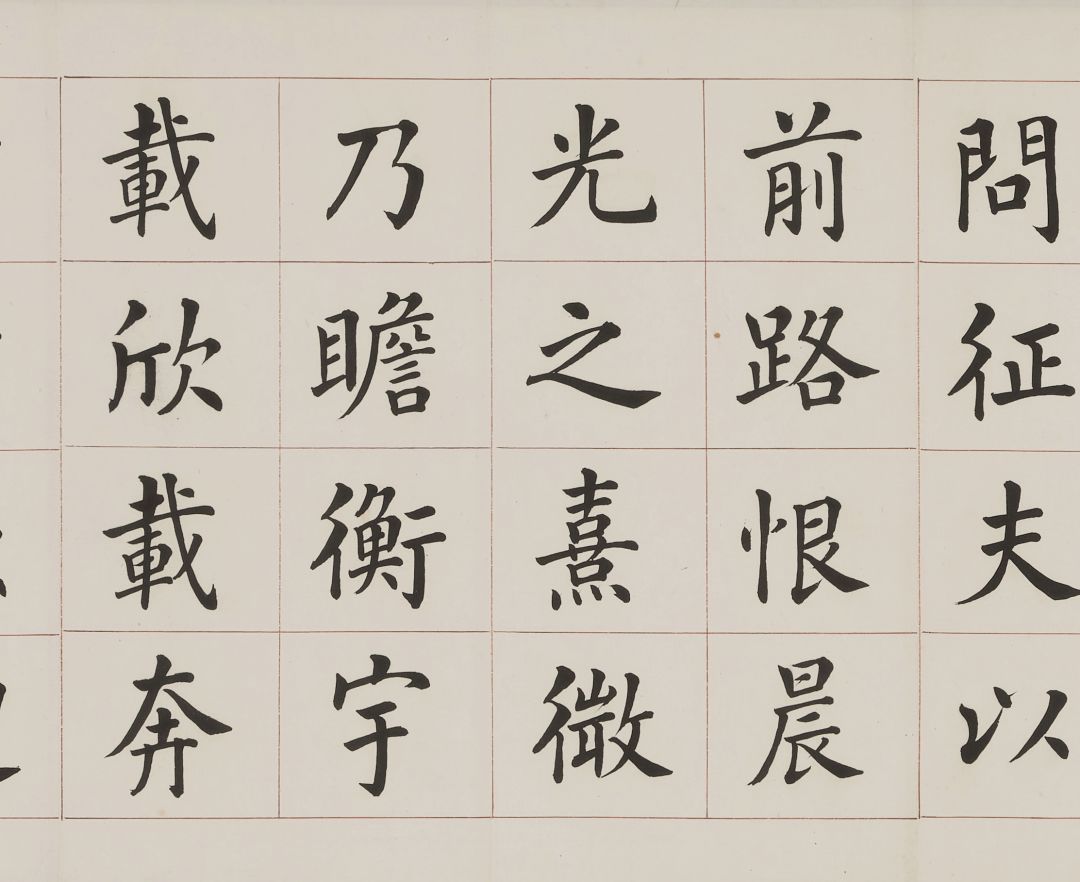 問征夫以
前路恨晨
光之熹微
乃瞻衡宇
載欣載奔